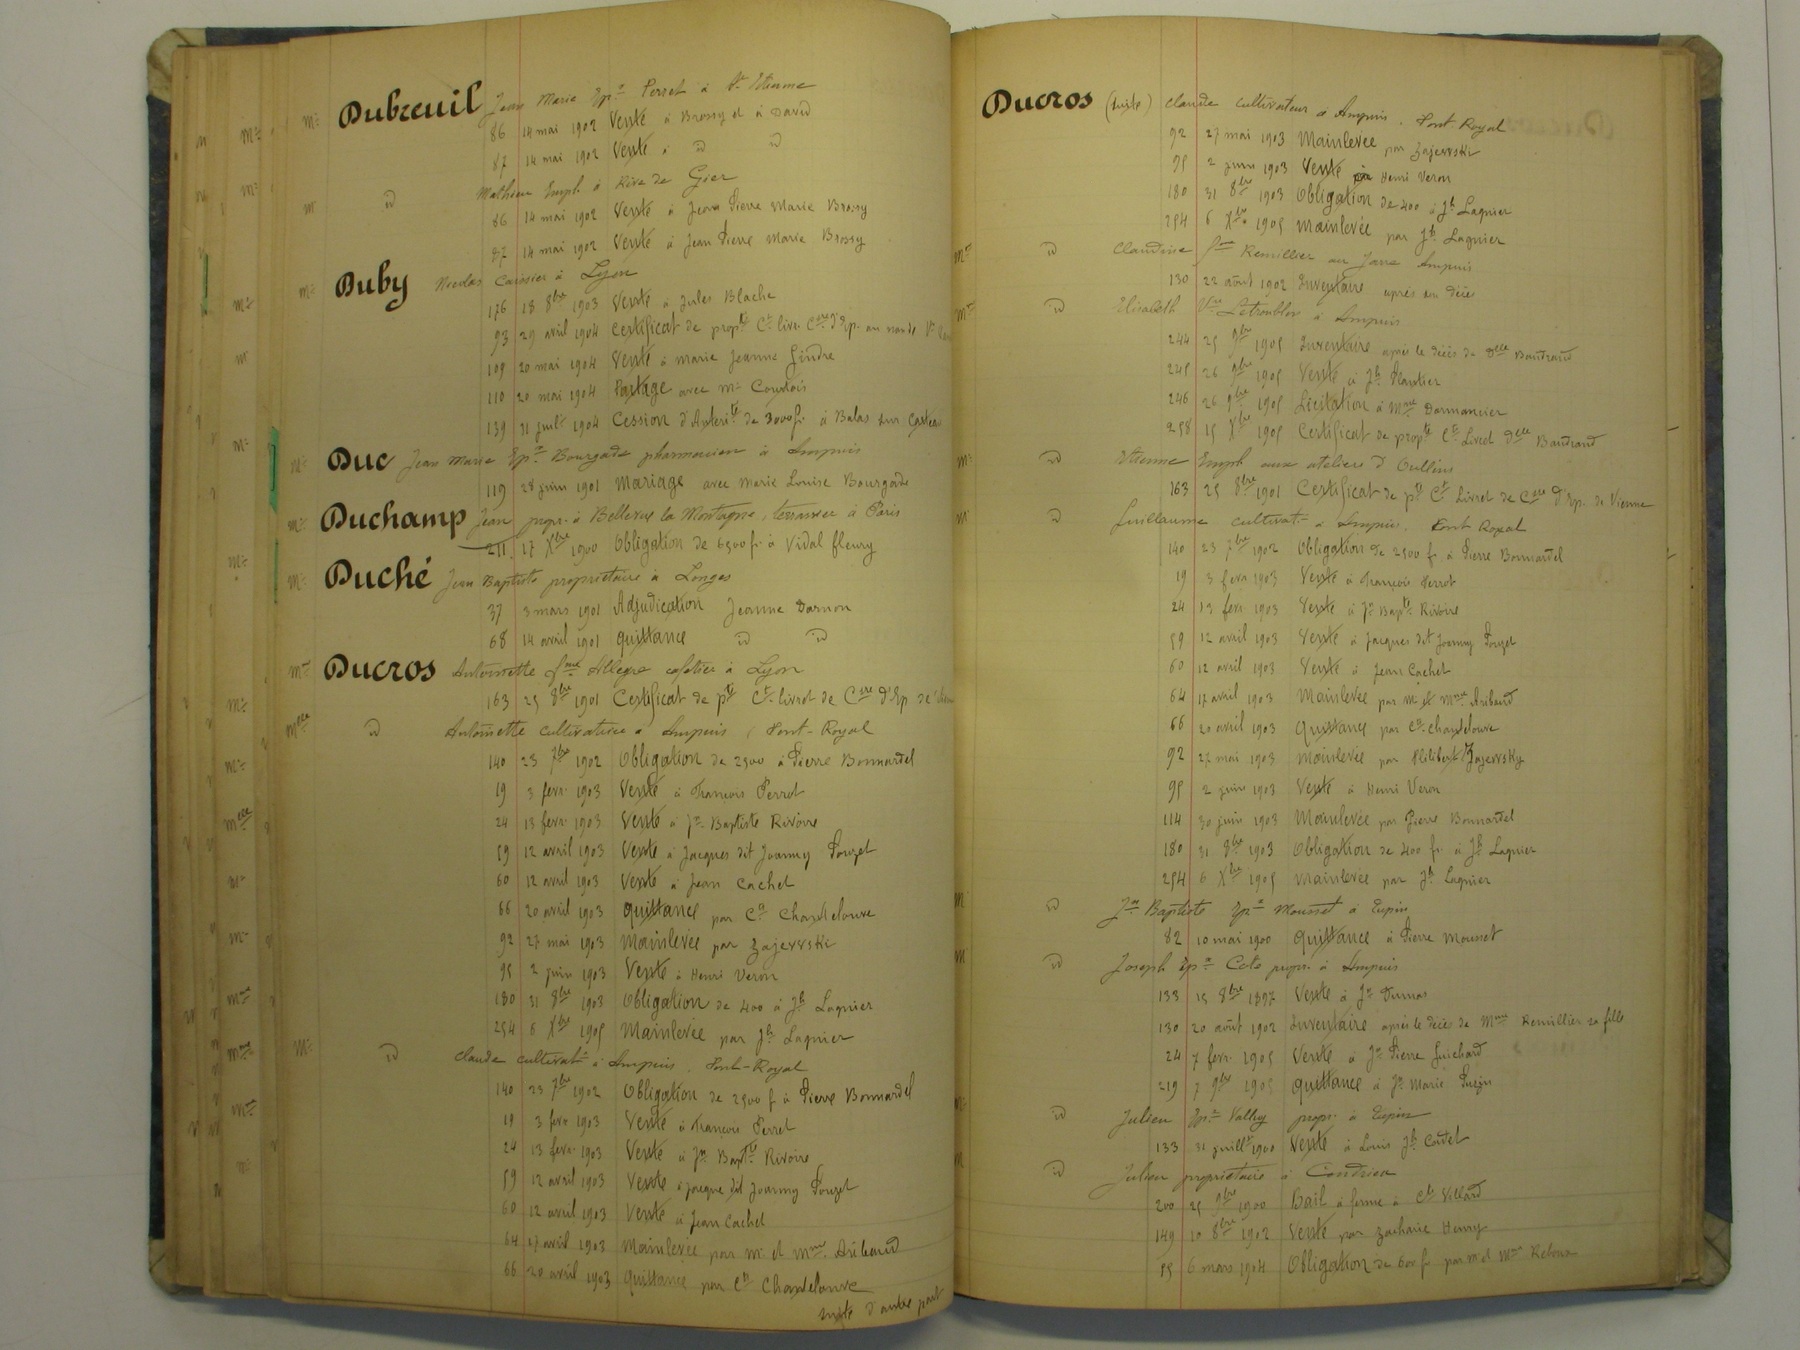 Mr Dubreuil Jean Marie Epx Perret à St Etienne
86 14 mai 1902 Vente à Brossy et à David
87 14 mai 1902 Vente à id id
Mr id Mathieu Empl. à Rive de Gier
86 14 mai 1902 Vente à Jean Pierre Marie Brossy
87 14 mai 1902 Vente à Jean Pierre Marie Brossy
Mr Duby Nicolas caissier à Lyon
176 18 8bre 1903 Vente à Jules Blache
93 29 avril 1904 Certificat de propté Ct livr. Csse d'Ep. au nom de
109 20 mai 1904 Vente à Marie Jeanne Gindre
110 20 mai 1904 Partage avec Mr
139 21 juilt 1904 Cession d'Antérité de 3000 f. à Balas sur
Mr Duc Jean Marie Epx Bourgade pharmacien à Ampuis
119 28 juin 1901 Mariage avec Marie Louise Bourgade
Mr Duchamp Jean propr. à Bellevue la Montagne, terrassier à Paris
211 17 Xbre 1900 Obligation de 6500 fr à Vidal fleury
Mr Duché Jean Baptiste propriétaire à Longes
37 3 mars 1901 Adjudication Jeanne Darnon
68 14 avril 1901 quittance id id
Mme Ducros Antoinette fme Allegre cafetier à Lyon
163 25 8bre 1901 Certificat de pté Ct livret de Csse d'Ep de
Melle id Antoinette cultivatrice à Ampuis, Font-Royal
140 23 7bre 1902 Obligation de 2500 à Pierre Bonnardel
19 3 fevr. 1903 Vente à François Perrot
24 13 fevr. 1903 Vente à Jn Baptiste Rivoire
59 12 avril 1903 Vente à Jacques dit Joanny Pouzet
60 12 avril 1903 Vente à Jean Cachet
66 20 avril 1903 quittance par Ct Chandelouve
92 27 mai 1903 Mainlevée par Zajewski
95 2 juin 1903 Vente à Henri Veron
180 31 8bre 1903 Obligation de 400 à Jh Lagnier
254 6 Xbre 1905 Mainlevée par Jh Lagnier
Mr id Claude cultivatr à Ampuis. Font-Royal
140 23 7bre 1902 Obligation de 2500 f à Pierre Bonnardel
19 3 fevr 1903 Vente à François Perret
24 13 fevr. 1903 Vente à Jn Bapte Rivoire
59 12 avril 1903 Vente à Jacque dit Joanny Pouzet
60 12 avril 1903 Vente à Jean Cachet
64 17 avril 1903 Mainlevée par Mr et Mme Aribaud
66 20 avril 1903 quittance par Ct Chandelouve
suite d'autre part
Ducros (suite) Claude cultivateur à Ampuis. Font Royal
92 27 mai 1903 Mainlevée par Zajewski
95 2 juin 1903 Vente Henri Veron
180 31 8bre 1903 Obligation de 400 à Jh Lagnier
254 6 Xbre 1905 mainlevée par Jh Lagnier
Mme id Claudine fme Remillier au Ampuis
130 22 août 1902 Inventaire après son décès
Mme id Elisabeth Vve à Ampuis
244 25 9bre 1905 Inventaire après le décès de Delle Baudrand
245 26 9bre 1905 Vente à Jh Plantier
246 26 9bre 1905 Licitation à Mme Darmancier
258 15 Xbre 1905 Certificat de propté Ct Livret Delle Baudrand
Mr id Etienne Empl. aux ateliers d'Oullins
163 25 8bre 1901 Certificat de pté Ct Livret de Csse d'Ep. de Vienne
Mr id Guillaume cultivatr à Ampuis. Font Royal
140 23 7bre 1902 Obligation de 2500 f. à Pierre Bonnardel
19 3 fevr 1903 Vente à François Perrot
24 13 fevr. 1903 Vente à Jn Bapte Rivoire
59 12 avril 1903 Vente à Jacques dit Joanny Pouzet
60 12 avril 1903 Vente à Jean Cachet
64 17 avril 1903 Mainlevée par Mr et Mme Aribaud
66 20 avril 1903 Quittance par Ct Chandelouve
92 27 mai 1903 Mainlevée par Philibert Zajewsky
95 2 juin 1903 Vente à Henri Veron
114 30 juin 1903 Mainlevée par Pierre Bonnardel
180 31 8bre 1903 Obligation de 400 fr. à Jh Lagnier
254 6 Xbre 1905 Mainlevée par Jh Lagnier
Mr id Jn Baptiste Epx Mousset à Tupin
82 10 mai 1900 Quittance à Pierre Mousset
Mr id Joseph Epx Cote propr. à Ampuis
133 15 8bre 1897 Vente à Jn Dumas
130 20 août 1902 Inventaire après le décès de Mme Remillier sa fille
24 7 fevr. 1905 Vente à Jn Pierre Guichard
219 7 9bre 1905 quittance à Jn Marie
id Julien Epx Valluy propr. à Tupin
133 31 juillt 1900 Vente à Louis Jh Cadet
id Julien propriétaire à Condrieu
200 25 9bre 1900 Bail à ferme à Ct Villard
149 10 8bre 1902 Vente par Zacharie Henry
55 6 mars 1904 Obligation de 600 fr par Mr et Mme